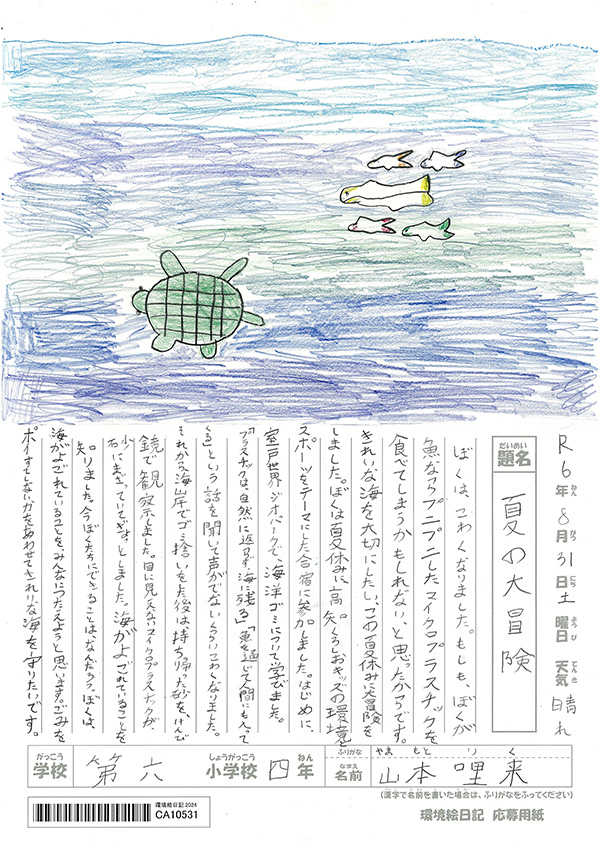 R6年ねん8月がつ31日にち土曜日ようび 天気てんき 晴れ
だいめい
題名 夏の大冒険
ぼくは、こわくなりました。もしも、ぼくが
魚ならプニプニしたマイクロプラスチックを
食べてしまうかもしれない、と思ったからです。
きれいな海を大切にしたい、この夏休みに大冒険を
しました。ぼくは夏休みに、高知くろしおキッズの環境と
スポーツをテーマにした合宿に参加しました。はじめに、
室戸世界ジオパークで、海洋ゴミについて学びました。
「プラスチックは、自然に返らず、海に残る」「魚を通じて人間にも入って
くる」という話を聞いて声がでないくらいこわくなりました。
それから海岸でゴミ捨いをした後は持ち帰った砂を、けんび
鏡で観察しました。目に見えないマイクロプラスチックが、
小石にまぎっていてぎょっとしました。海がよごれていることを
知りました。今ぼくたちにできることは、なんだろう、ぼくは、
海がよごれていることを、みんなにつたえようと思います。ごみを
ポイすてしない力をあわせてきれいな海を守りたいです。
がっこう しょうがっこう ねん ふりがな やまもと りく
学校 第六 小学校 四年 なまえ 名前 山本哩来
(漢字で名前を書いた場合は、ふりがなをふってください)
環境絵日記2024
CA10531
環境絵日記 応募用紙